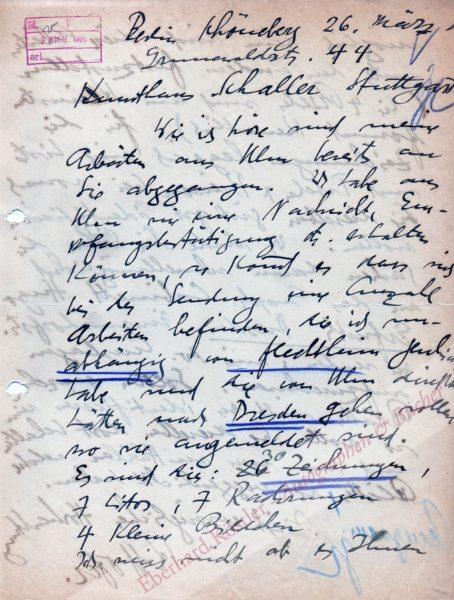 Berlin Schöneberg 26. März
Grunewaldstr. 44
Kunsthaus Schaller Stuttgart
Wie ich höre sind meine
Arbeiten aus Ulm bereits an
Sie abgegangen. Ich habe aus
Ulm nie eine Nachricht, Em-
pfangsbestätigung etc. erhalten
können, so kommt es dass sich
bei der Sendung eine Anzahl
Arbeiten befinden, die ich un-
abhängig von Flechtheim
habe und die von Ulm direkt
hätten nach Dresden gehen sollen
wo sie angemeldet sind.
Es sind die: 30 Zeichnungen,
7 Lithos, 7 Radierungen
4 kleine Bildchen
Ich weiss nicht ob es Ihnen
Eberhard Köstler Autographen & Bücher